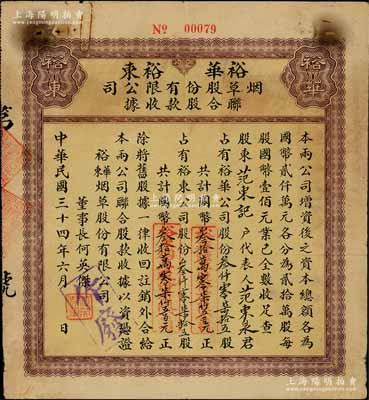 上海阳明拍卖
www.ymauction.com
No 00079
裕華
裕東
裕華
裕東
烟草股份有限公司
聯合股款收據
本兩公司增資後之資本總額各為
國幣貳仟萬元各分為貳拾萬股每
股國幣壹佰元業已全數收足查
股東范東記戶代表人范東泉君
占有裕華公司股份叁仟零柒拾五股
共計國幣叁拾萬零柒仟五百元正
占有裕東公司股份叁仟零柒拾五股
共計國幣叁拾萬零柒仟五百元正
除將舊股據一律收回註銷外合給
本兩公司聯合股款收據以資憑證
裕華
裕東
烟草股份有限公司
董事長何英傑
中華民國三十四年六月 日
第
號